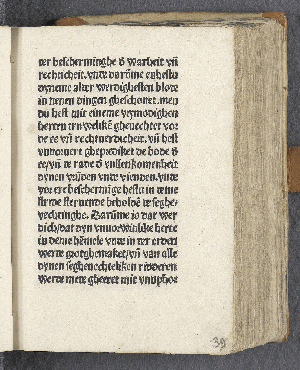 ter bescherminghe d̉ warheit vn̄
rechticheit. vnde darūme enhestu
dyneme alder werdighesten blode
in nenen dingen gheschonet. men
du hest mit eineme vrymodighen
herten truweliken gheuechtet vor
de ee vn̄ rechtuerdicheit. vn̄ hest
vnvoruert ghepredeket de bode d̉
ee/ vn̄ de rade d̉ vullenkomenheit
dynen vrūden vnde vienden. vnde
vor ere beschermige hestu in deme
ste
rde steruende beholdē de seghe
vechtinghe. Darūme so dat wer
dich/dat dyn vnuorwinlike herte
in deme hēmele vnde in der erden
werde grotghemaket/ vn̄ van alle
dynen seghenechteliken ridderen
werde mede gheeret mit vnuphor
39